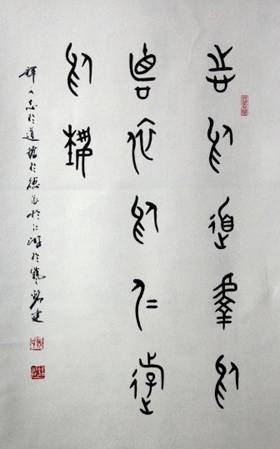 志於道據於
德依於仁游
於藝
志於道據於德依於仁游於藝